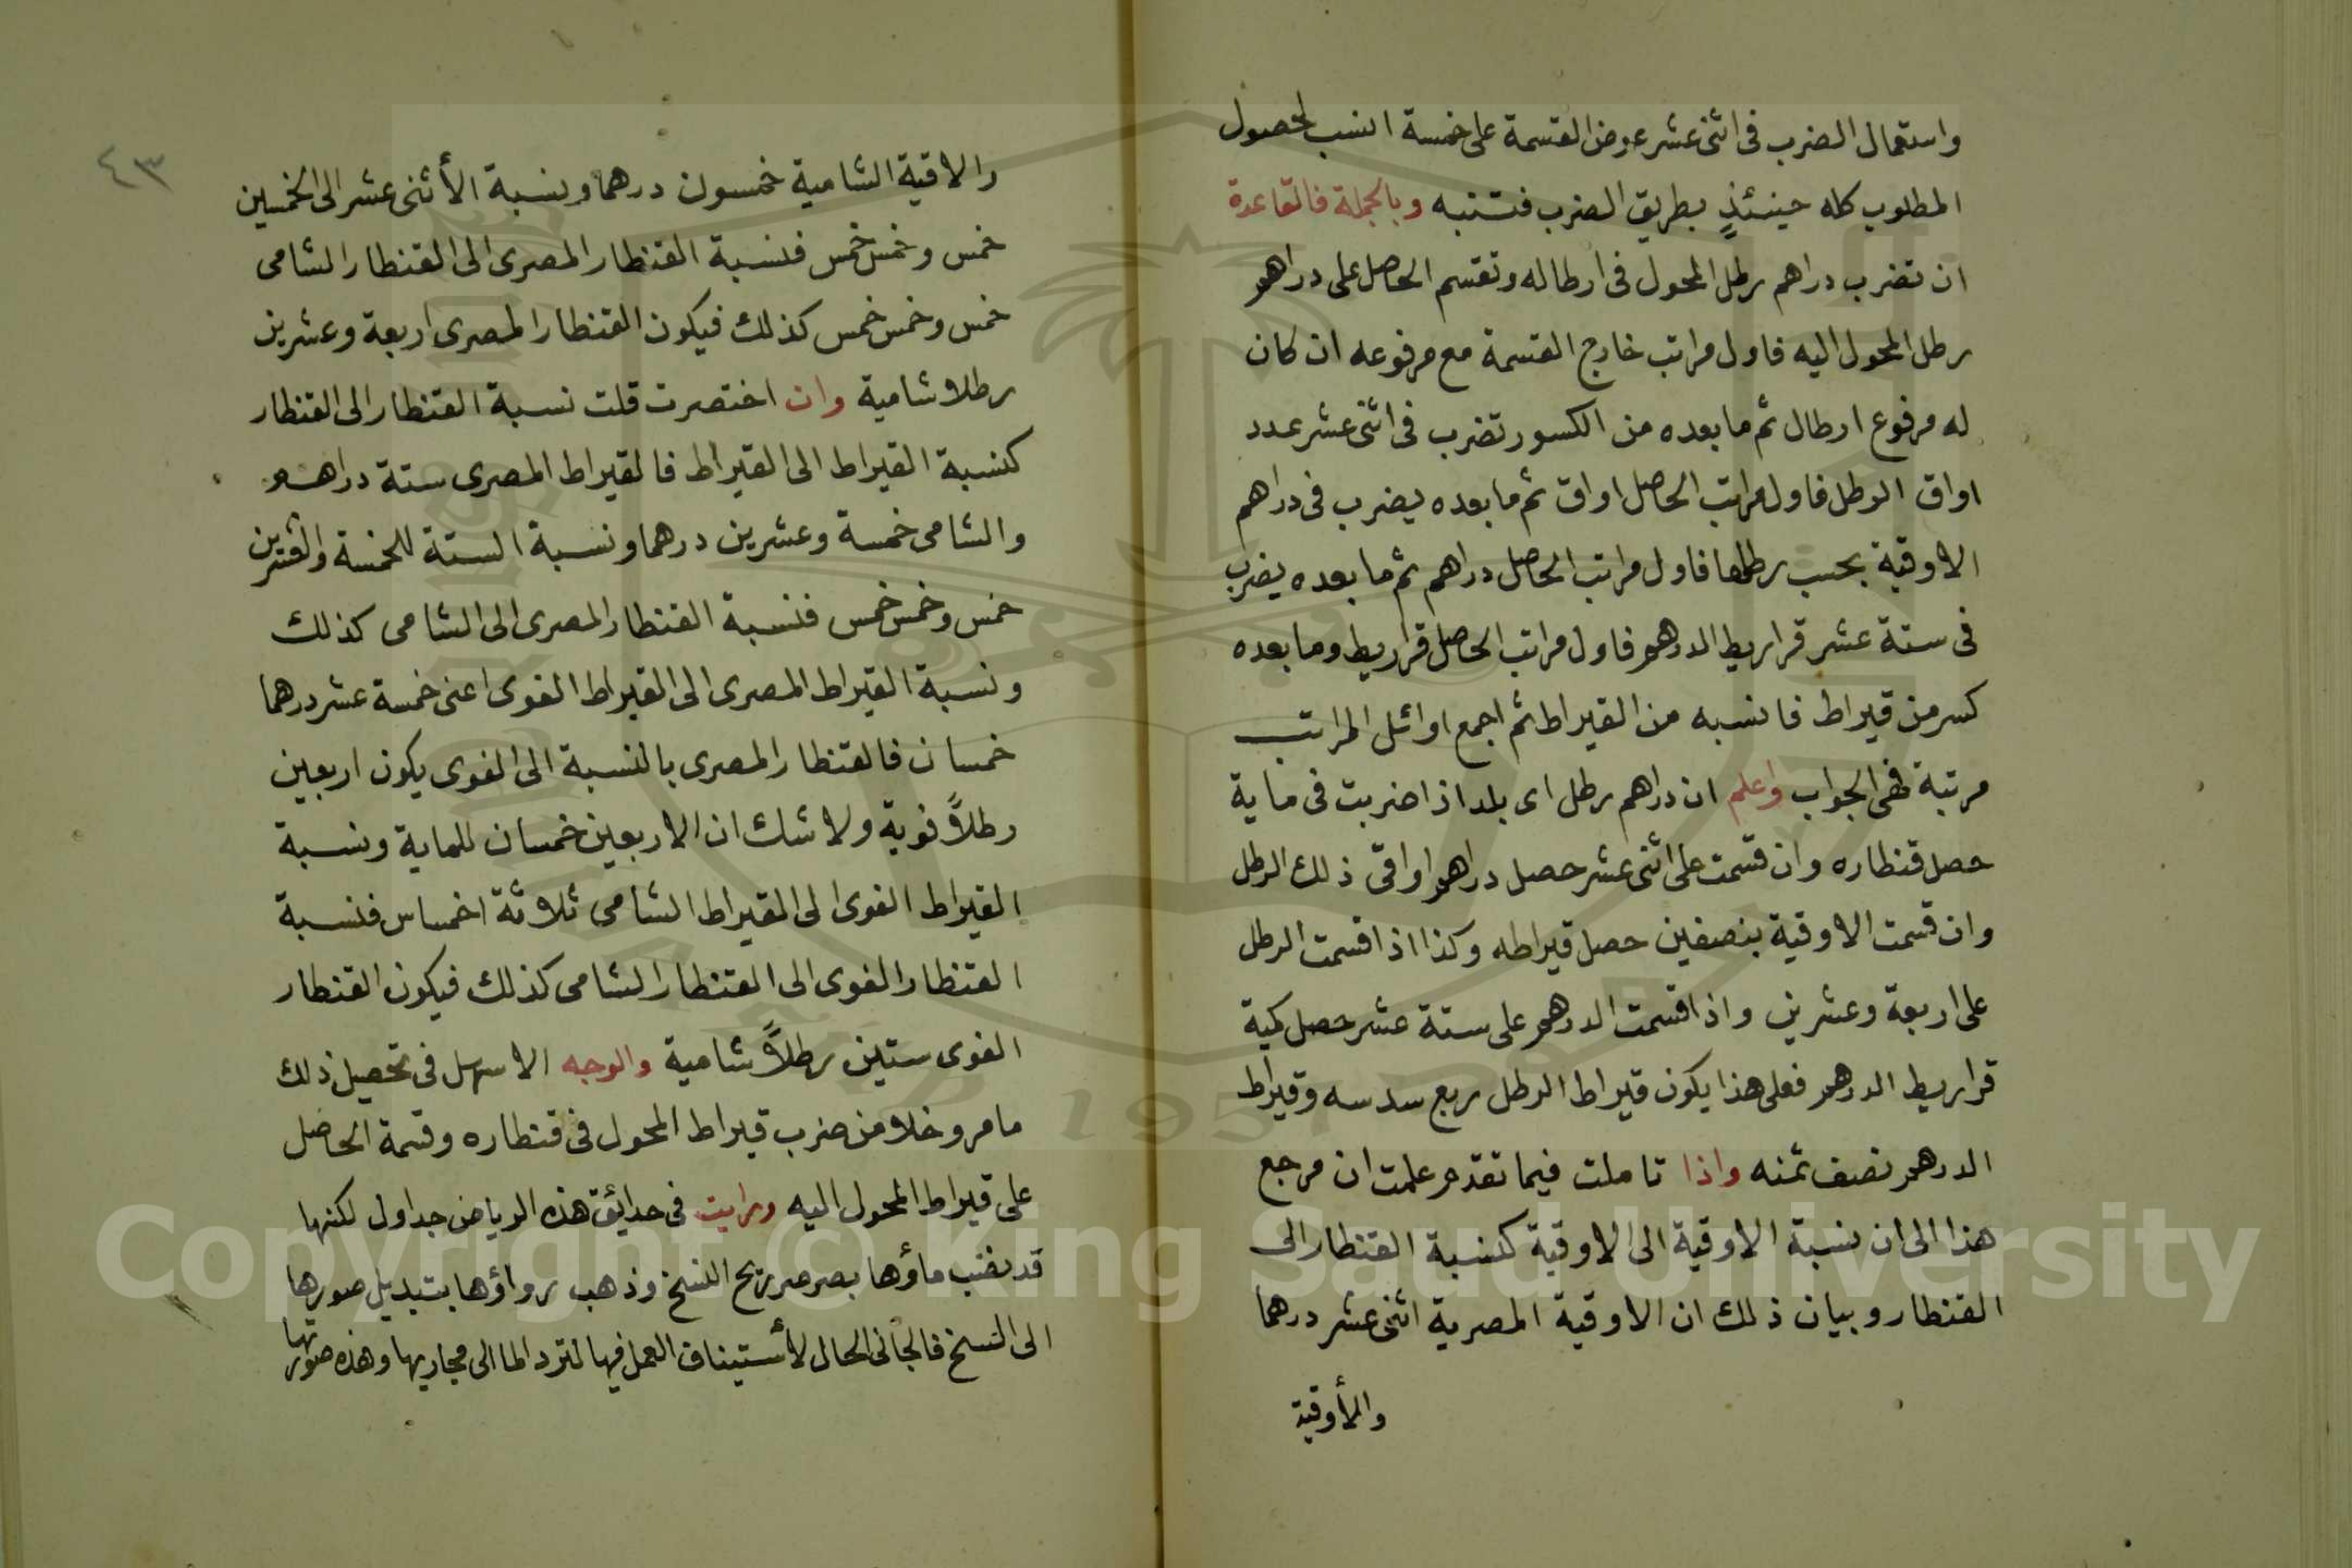 واستعمال الضرب فى اثنى عشر عوض القسمة على خمسة انسب لحصول
المطلوب كله حينئذٍ بطريق الضرب فتنبه وبالجملة فالقاعدة
ان تضرب دراهم رطل المحول فى ارطاله وتقسم الحاصل على دراهم
رطل المحول اليه فاول مراتب خارج القسمة مع مرفوعه ان كان
له مرفوع ارطال ثم ما بعده من الكسور تضرب فى اثنى عشر عدد
اواق الرطل فاول مراتب الحاصل اواق ثم ما بعده يضرب فى دراهم
الاوقية بحسب رطلها فاول مراتب الحاصل دراهم ثم ما بعده يضرب
فى ستة عشر قراريط الدرهم فاول مراتب الحاصل قراريط وما بعده
كسر من قيراط فانسبه من القيراط ثم اجمع اوائل المراتب
مرتبة فهى الجواب واعلم ان دراهم رطل اى بلد اذا ضربت فى ماية
حصل قنطاره وان قسمت على اثنى عشر حصل دراهم اواقى ذلك الرطل
وان قسمت الاوقية بنصفين حصل قيراطه وكذا اذا قسمت الرطل
على اربعة وعشرين واذا قسمت الدرهم على ستة عشر حصل كمية
قراريط الدرهم فعلى هذا يكون قيراط الرطل ربع سدسه وقيراط
الدرهم نصف ثمنه واذا تاملت فيما تقدم علمت ان مرجع
هذا الى ان نسبة الاوقية الى الاوقية كنسبة القنطار الى
القنطار وبيان ذلك ان الاوقية المصرية اثنى عشر درهما
والأوقية
٤٣
والاقية الشامية خمسون درهما ونسبة الأثنى عشر الى الخمسين
خمس وخمس خمس فنسبة القنطار المصرى الى القنطار الشامى
خمس وخمس خمس كذلك فيكون القنطار المصرى اربعة وعشرين
رطلا شامية وان اختصرت قلت نسبة القنطار الى القنطار
كنسبة القيراط الى القيراط فالقيراط المصرى ستة دراهم
والشامى خمسة وعشرين درهما ونسبة الستة للخمسة والعشرين
خمس وخمس خمس فنسبة القنطار المصرى الى الشامى كذلك
ونسبة القيراط المصرى الى القيراط الفوى اعنى خمسة عشر درهما
خمسان فالقنطار المصرى بالنسبة الى الفوى يكون اربعين
رطلاً فوية ولا شك ان الاربعين خمسان للماية ونسبة
القيراط الفوى الى القيراط الشامى ثلاثة اخماس فنسبة
القنطار الفوى الى القنطار الشامى كذلك فيكون القنطار
الفوى ستين رطلاً شامية والوجه الاسهل فى تحصيل ذلك
ما مر وخلا من ضرب قيراط المحول فى قنطاره وقسمة الحاصل
على قيراط المحول اليه ورايت فى حدايق هذه الرياض جداول لكنها
قد نضب ماؤها بصرصر ريح النسخ وذهب رواؤها بتبديل صورها
الى النسخ فالجأنى الحال لأستيناف العمل فيها لترد الما الى مجاريها وهذه صورتها
Copyright © King Saud University
1957